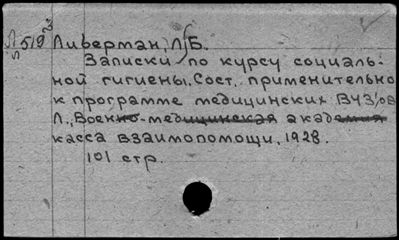 Л519
п
Либерман, Л. Б.
Записки по курсу социаль-
ной гигиены. Сост. применительно
к программе медицинских ВУЗ'ов
Л., Военно-медицинская академия
касса взаимопомощи, 1928.
101 стр.